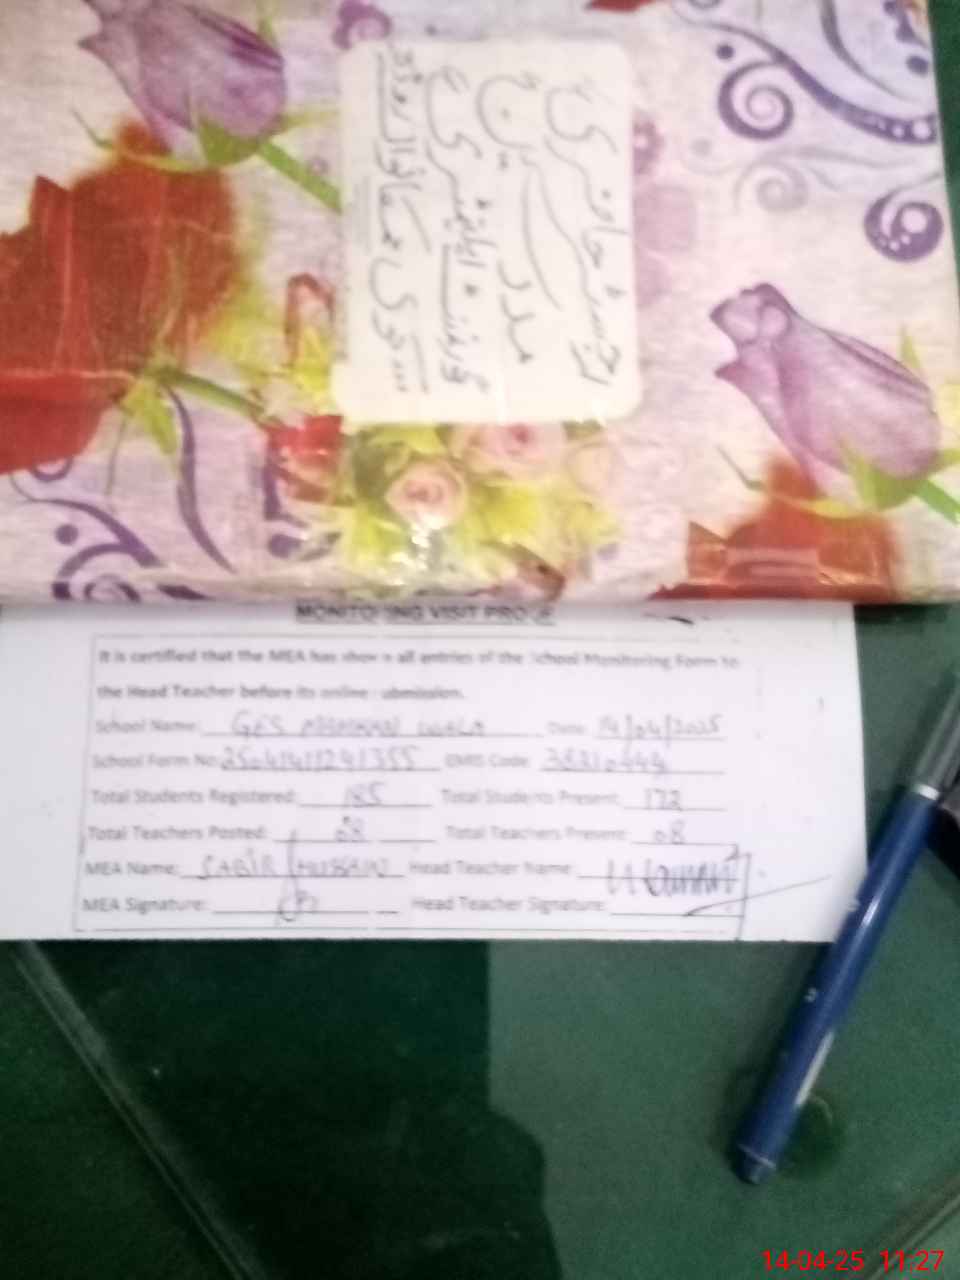 رجسٹر حاضری
مدرسین
گورنمنٹ ایلیمنٹری
MONITORING VISIT PROOF
It is certified that the MEA has shown all entries of the School Monitoring Form to
the Head Teacher before its online submission.
School Name: GES WALA Date: 14/04/2025
School Form No: EMIS Code:
Total Students Registered: 185 Total Students Present: 172
Total Teachers Posted: 08 Total Teachers Present: 08
MEA Name: SABIR HUSSAIN Head Teacher Name:
MEA Signature: Head Teacher Signature:
14-04-25 11:27